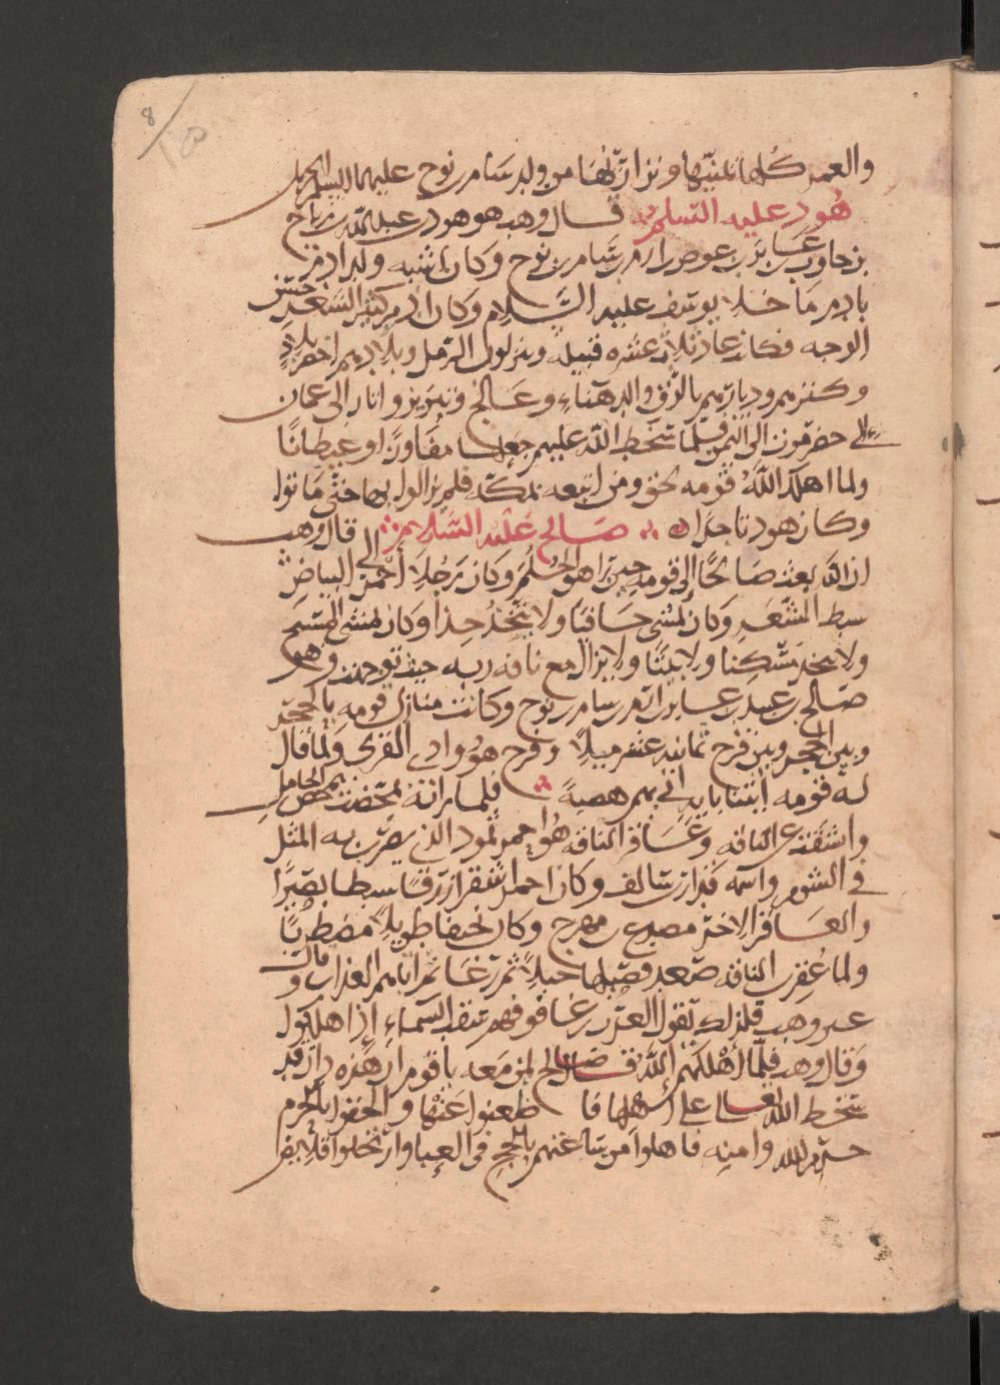 8
والعرب كلها يمنيها ونزاريها من ولد سام بن نوح عليهما السلم
هود عليه السلم قال وهب هو هود بن عبد الله بن رباح
بن حاور بن عاد بن عوص بن ارم بن سام بن نوح وكان اشبه ولد ادم
بادم ما خلا يوسف عليه السلام وكان ادم كثير الشعر حسن
الوجه فكانت عاد ثلاث عشره قبيلة وينزلون الرمل وبلادهم اخصب بلاد
وكثرهم وديارهم بالدو والدهناء وعالج ويبرين ووبار الى عمان
الى حضرموت الى اليمن فلما سخط الله عليهم جعلها مفاوز او غيطانا
ولما اهلك الله قومه لحق ومن اتبعه بمكة فلم يزالوا بها حتى ماتوا
وكان هود تاجرا صالح عليه السلام قال وهب
ان الله بعث صالحا الى قومه حين راهق الحلم وكان رجلا أحمر الى البياض
سبط الشعر وكان يمشي حافيا ولا يتخذ حذا وكان يمشي المسيح
ولا يتخذ مسكنا ولا بيتا ولا يزال مع ناقه ربه حيث توجهت وهو
صالح بن عبيد بن عابر بن ارم بن سام بن نوح وكانت منازل قومه بالحجر
وبين الحجر وبين قرح ثمانيه عشر ميلا وقرح هو وادي القرى ولما قال
له قومه ائتنا بايه اتى بهم هضبة فلما راته تمخضت كما تمخض الحامل
وانشقت عن الناقه وعاقر الناقه هو احمر ثمود الذي يضرب به المثل
في الشوم واسمه قدار بن سالف وكان احمر اشقر ازرق سناطا قصيرا
والعاقر الاخر مصدع بن مهرج وكان نحيفا طويلا مضطربا
ولما عقرت الناقه صعد فصيلها جبلا ثم رغا ثم اتاهم العذاب قال
وهب فلذلك تقول العرب رغا فوقهم سقب السماء إذا هلكوا
وقال وهب فلما اهلكهم الله قال صالح لمن معه يا قوم ان هذه دار قد
سخط الله تعالى على اهلها فاظعنوا عنها والحقوا بحرم
حرم الله وامنه فاهلوا من ساعتهم بالحج في العبا وارتحلوا قلايص